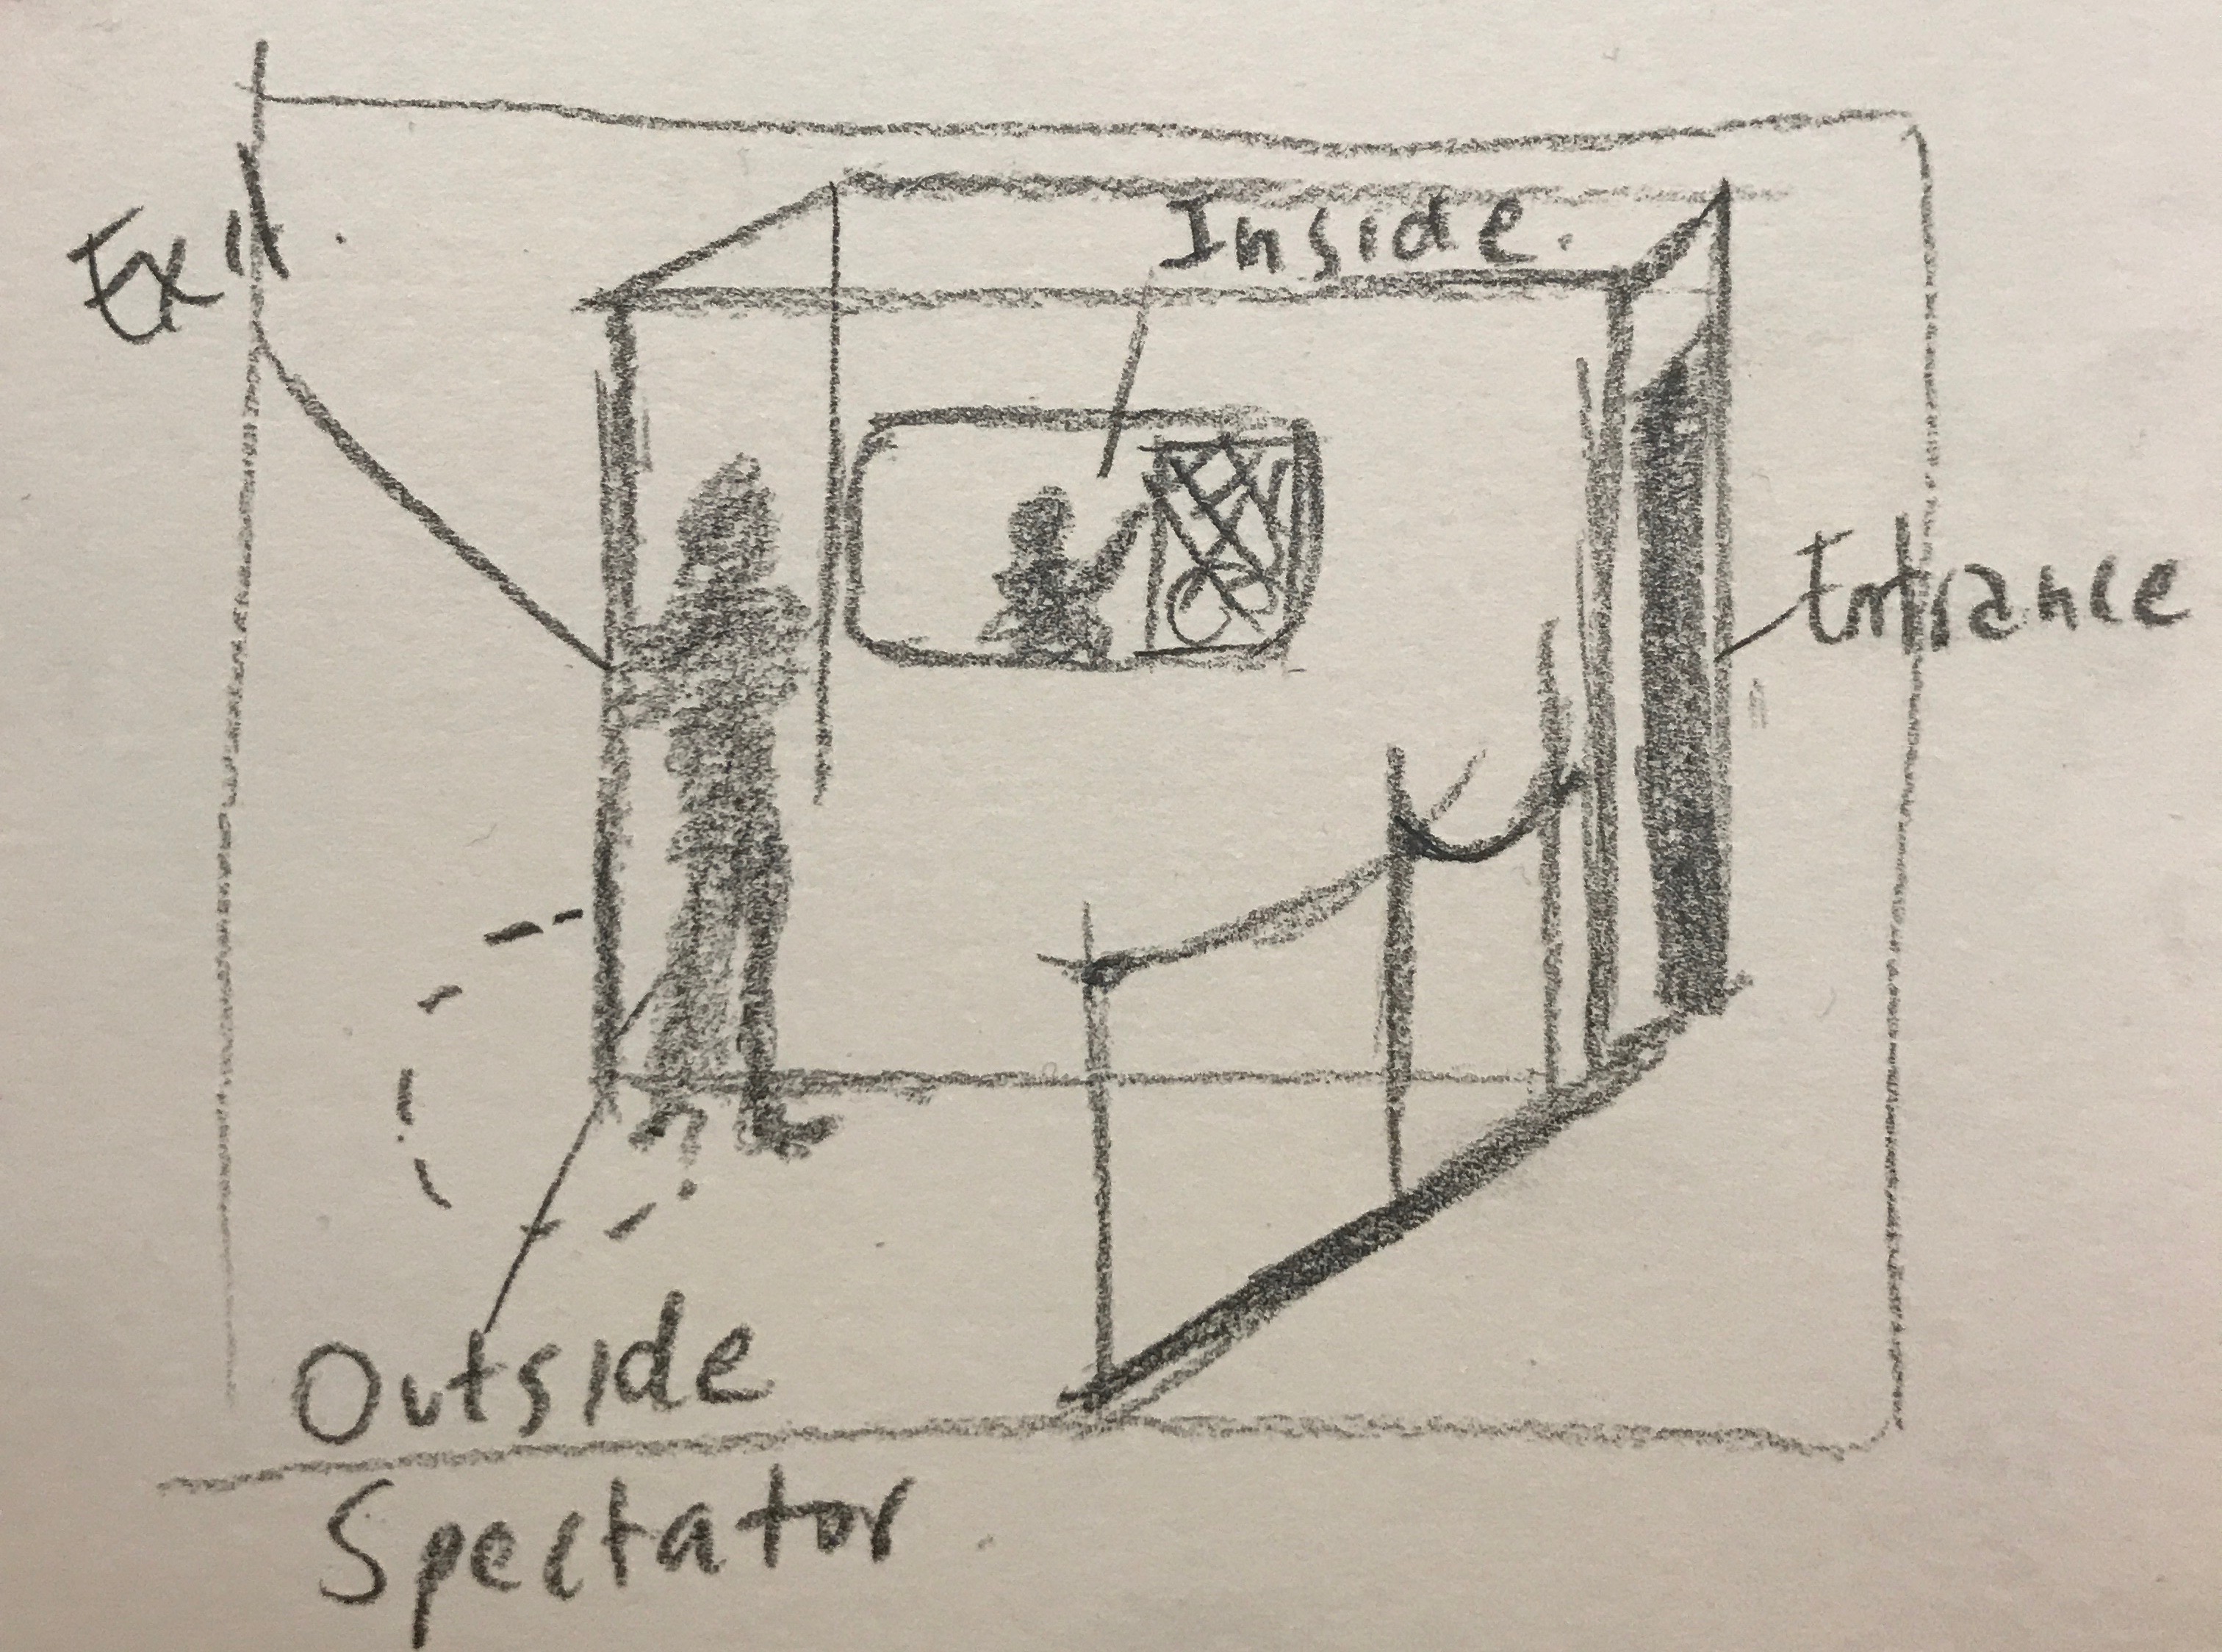 Exit.
Inside.
Entrance
Outside
Spectator.